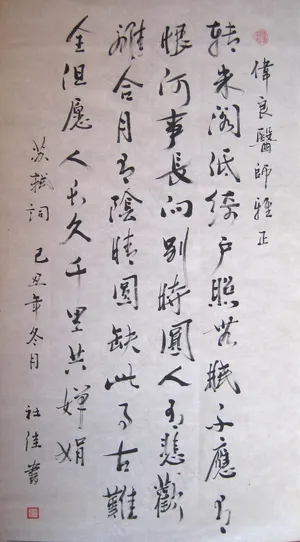 偉良醫師雅正
转朱阁低绮户照無眠不應有
恨何事長向别時圓人有悲歡
離合月有陰晴圓缺此事古難
全但愿人长久千里共嬋娟
苏軾詞 己丑年冬月 佳書